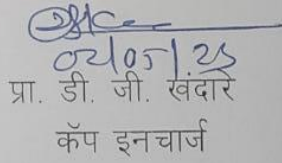 02/05/25
प्रा. डी. जी. खंदारे
कॅप इनचार्ज